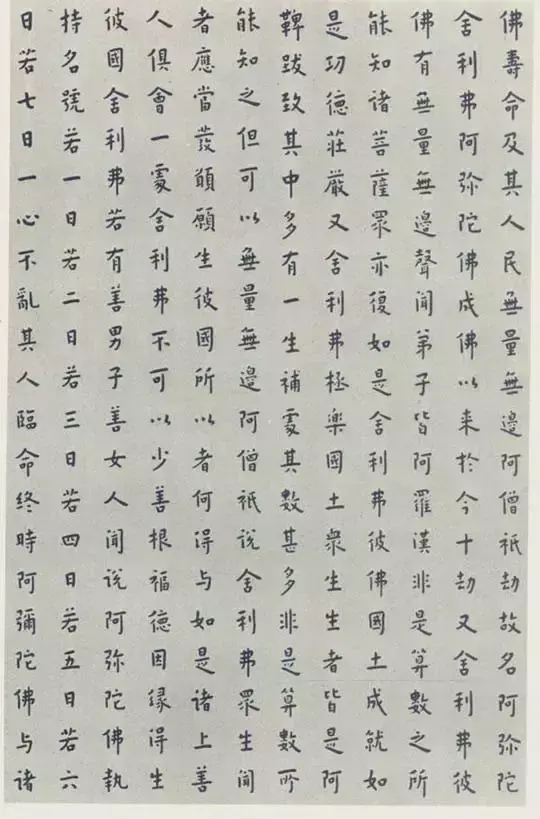 佛壽命及其人民無量無邊阿僧祇劫故名阿弥陀
舍利弗阿弥陀佛成佛以来於今十劫又舍利弗彼
佛有無量無邊聲聞弟子皆阿羅漢非是算數之所
能知諸菩薩眾亦復如是舍利弗彼佛國土成就如
是功德莊嚴又舍利弗極樂國土衆生生者皆是阿
鞞跋致其中多有一生補處其數甚多非是算數所
能知之但可以無量無邊阿僧祇說舍利弗眾生聞
者應當發願願生彼國所以者何得与如是諸上善
人俱會一處舍利弗不可以少善根福德因緣得生
彼國舍利弗若有善男子善女人聞說阿弥陀佛執
持名號若一日若二日若三日若四日若五日若六
日若七日一心不亂其人臨命終時阿彌陀佛与諸